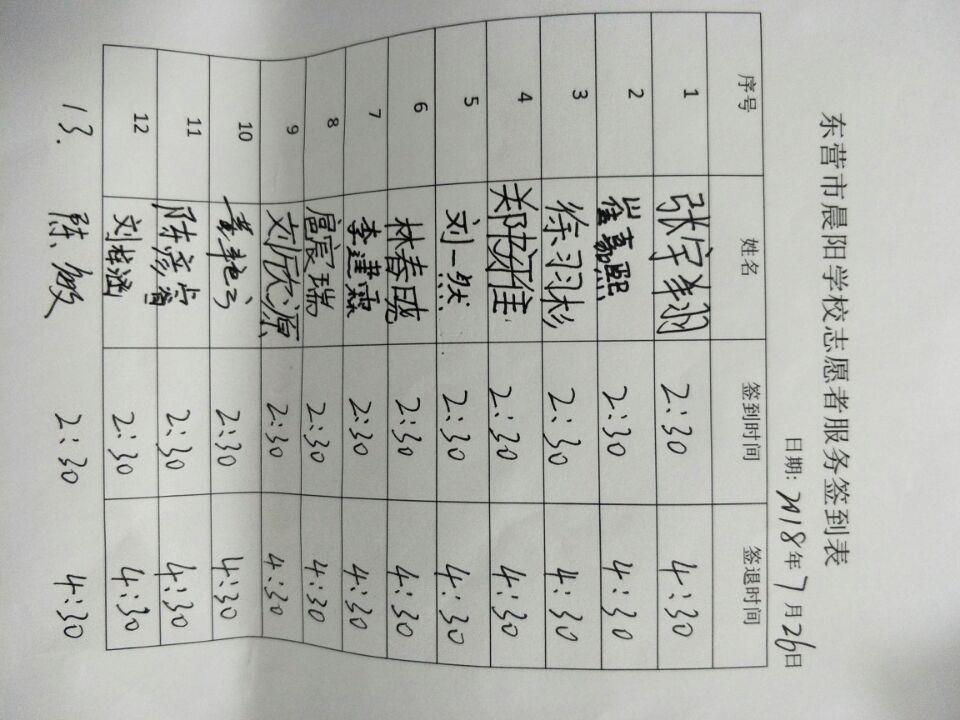 东营市晨阳学校志愿者服务签到表
日期: 2018年7月26日
序号 姓名 签到时间 签退时间
1 张宇翔 2:30 4:30
2 崔嘉熙 2:30 4:30
3 徐羽杉 2:30 4:30
4 郑妍佳 2:30 4:30
5 刘一然 2:30 4:30
6 林春晓 2:30 4:30
7 李建霖 2:30 4:30
8 扈宸瑞 2:30 4:30
9 刘欣源 2:30 4:30
10 2:30 4:30
11 陈彦睿 2:30 4:30
12 刘梓涵 2:30 4:30
13. 陈敏 2:30 4:30